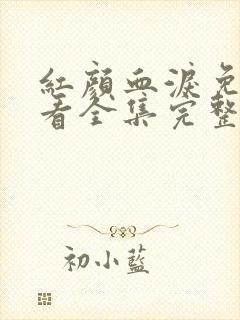 紅顏血淚免
看全集完整
初小藍